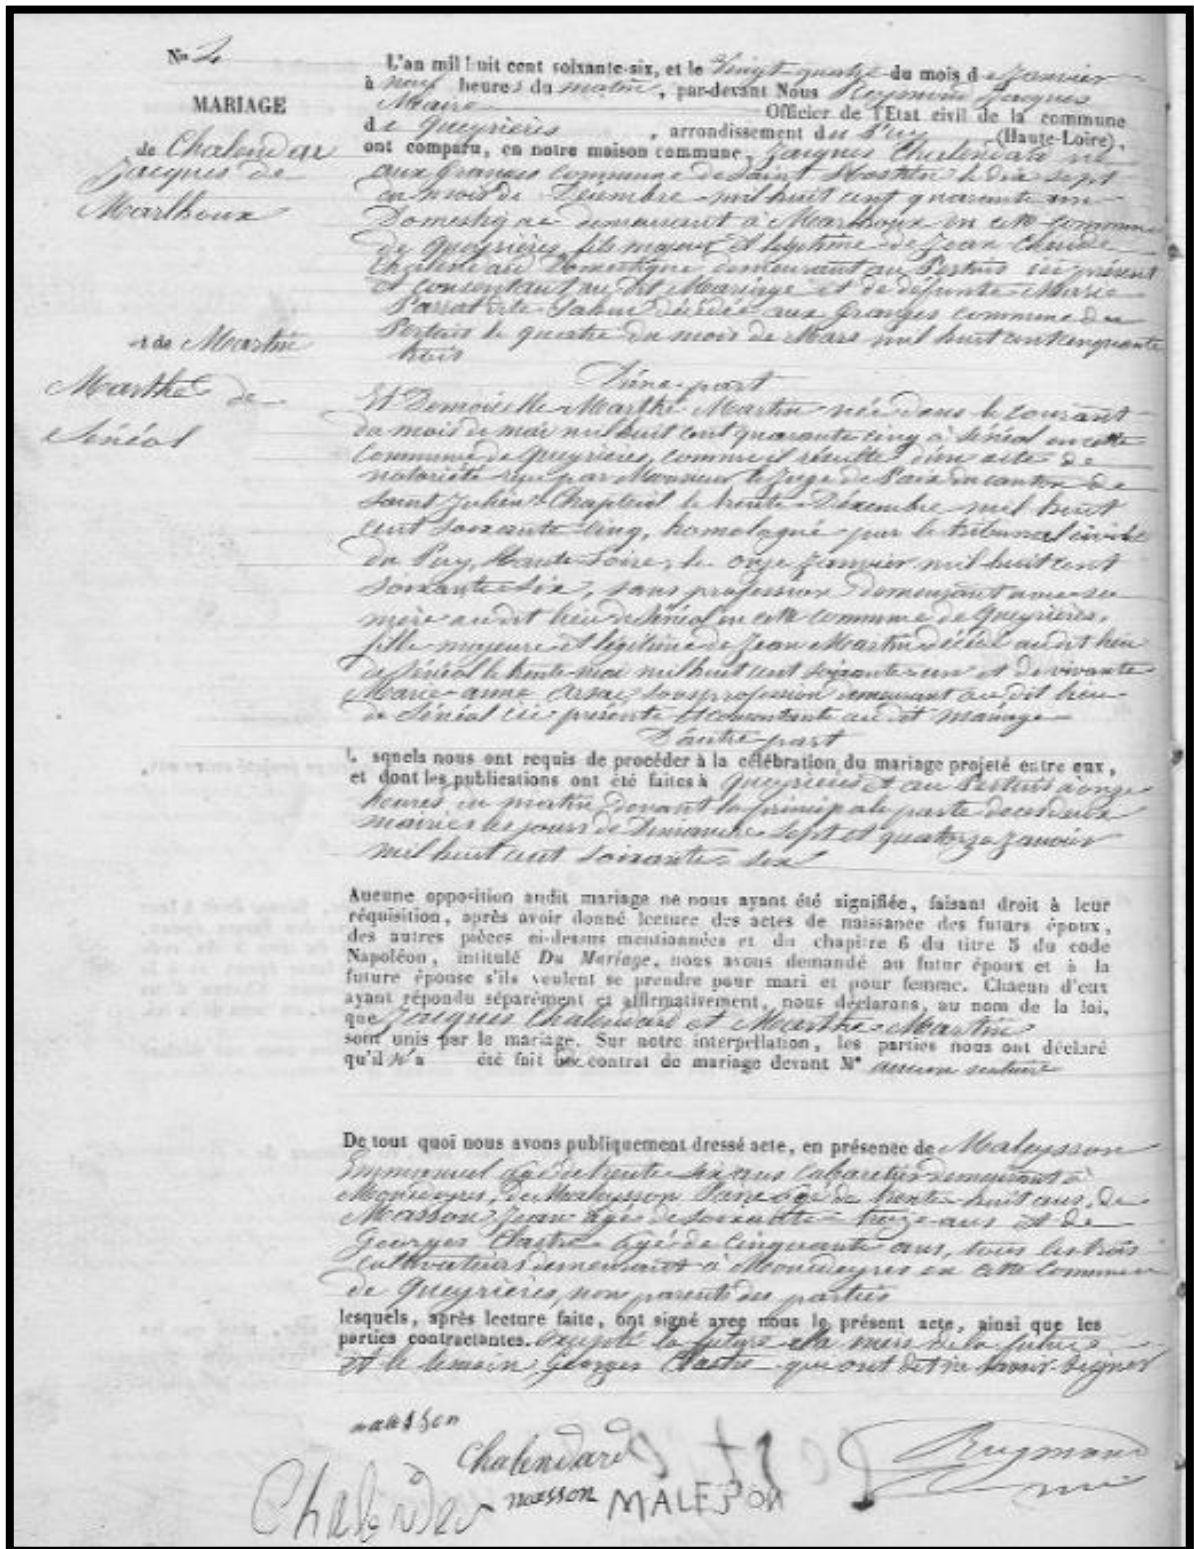 N° 2
MARIAGE
de Chalendar
Jacques de
Marlhoux
et de Martin
Marthe de
Sénéol
L'an mil huit cent soixante-six, et le vingt-quatre du mois de Janvier
à neuf heures du matin, par-devant Nous Reymond Jacques
Maire Officier de l'Etat civil de la commune
de Queyrières, arrondissement du Puy (Haute-Loire),
ont comparu, en notre maison commune, Jacques Chalendard né
aux Granges commune de Saint Hostien le dix sept
du mois de Décembre mil huit cent quarante un
Domestique demeurant à Marlhoux en cette commune
de Queyrières, fils majeur et légitime de Jean Claude
Chalendard Domestique demeurant au Pertuis ici présent
et consentant au dit Mariage et de défunte Marie
décédée aux Granges commune du
Pertuis le quatre du mois de Mars mil huit cent cinquante
huit
D'une part
Et Demoiselle Marthe Martin née dans le courant
du mois de mai mil huit cent quarante cinq à Sénéol en cette
Commune de Queyrières, comme il résulte d'un acte de
notoriété reçu par Monsieur le Juge de Paix du canton de
Saint Julien Chapteuil le trente Décembre mil huit
cent soixante cinq, homologué par le tribunal civil
du Puy, Haute-Loire, le onze Janvier mil huit cent
soixante six, sans profession demeurant avec sa
mère au dit lieu de Sénéol en cette commune de Queyrières,
fille majeure et légitime de Jean Martin décédé au dit lieu
de Sénéol le trente mai mil huit cent soixante un et de vivante
Marie-anne Arsac sans profession demeurant au dit lieu
de Sénéol ici présente et consentante au dit mariage
D'autre part
Lesquels nous ont requis de procéder à la célébration du mariage projeté entre eux,
et dont les publications ont été faites à Queyrières et au Pertuis à onze
heures du matin devant la principale porte de
mairies les jours de Dimanche sept et quatorze Janvier
mil huit cent soixante six
Aucune opposition audit mariage ne nous ayant été signifiée, faisant droit à leur
réquisition, après avoir donné lecture des actes de naissance des futurs époux,
des autres pièces ci-dessus mentionnées et du chapitre 6 du titre 5 du code
Napoléon, intitulé Du Mariage, nous avons demandé au futur époux et à la
future épouse s'ils veulent se prendre pour mari et pour femme. Chacun d'eux
ayant répondu séparément et affirmativement, nous déclarons, au nom de la loi,
que Jacques Chalendard et Marthe Martin
sont unis par le mariage. Sur notre interpellation, les parties nous ont déclaré
qu'il n'a été fait de contrat de mariage devant Me aucun notaire
De tout quoi nous avons publiquement dressé acte, en présence de Maleysson
Emmanuel âgé de trente six ans Cabaretier demeurant à
Monedeyres, de Maleysson âgé de trente-huit ans, de
Masson Jean âgé de soixante treize ans et de
Georges Chastre âgé de cinquante ans, tous les trois
cultivateurs demeurant à Monedeyres en cette commune
de Queyrières, non parents des parties
lesquels, après lecture faite, ont signé avec nous le présent acte, ainsi que les
parties contractantes. excepté la future et la mère de la future
et le témoin Georges Chastre qui ont dit ne savoir signer
Chalendard
Reymond
masson MALESSON
Chalender